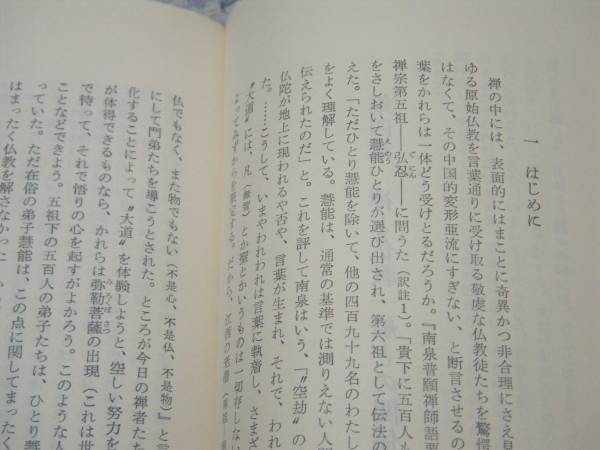 一 はじめに
禅の中には、表面的にはまことに奇異かつ非合理にさえ見
ゆる原始仏教を言葉通りに受け取る敬虔な仏教徒たちを驚愕
はなくて、その中国的変形亜流にすぎない、と断言させるの
葉をかれらは一体どう受けとるだろうか。『南泉普願禅師語要
禅宗第五祖――弘忍――に問うた（訳註1）。「貴下に五百人も
をさしおいて慧能ひとりが選び出され、第六祖として伝法の
えた。「ただひとり慧能を除いて、他の四百九十九名のわたし
をよく理解している。慧能は、通常の基準では測りえない人間
伝えられたのだ」と。これを評して南泉はいう、「〝空劫〟の
仏陀が地上に現われるや否や、言葉が生まれ、それで、われ
た。……こうして、いまやわれわれは言葉に執着し、さまざ
〝大道〟には、凡
とか聖とかいうものは一切存しない
仏でもなく、また物でもない（不是心、不是仏、不是物）』と言
にして門弟たちを導こうとされた。ところが今日の禅者たち
化することによって〝大道〟を体験しようと、空しい努力を
が体得できるものなら、かれらは弥勒菩薩の出現（これは世
で待って、それで悟りの心を起すがよかろう。このような人
ことなどできよう。五祖下の五百人の弟子たちは、ひとり慧
っていた。ただ在俗の弟子慧能は、この点に関してまったく
はまったく仏教を解さなかった